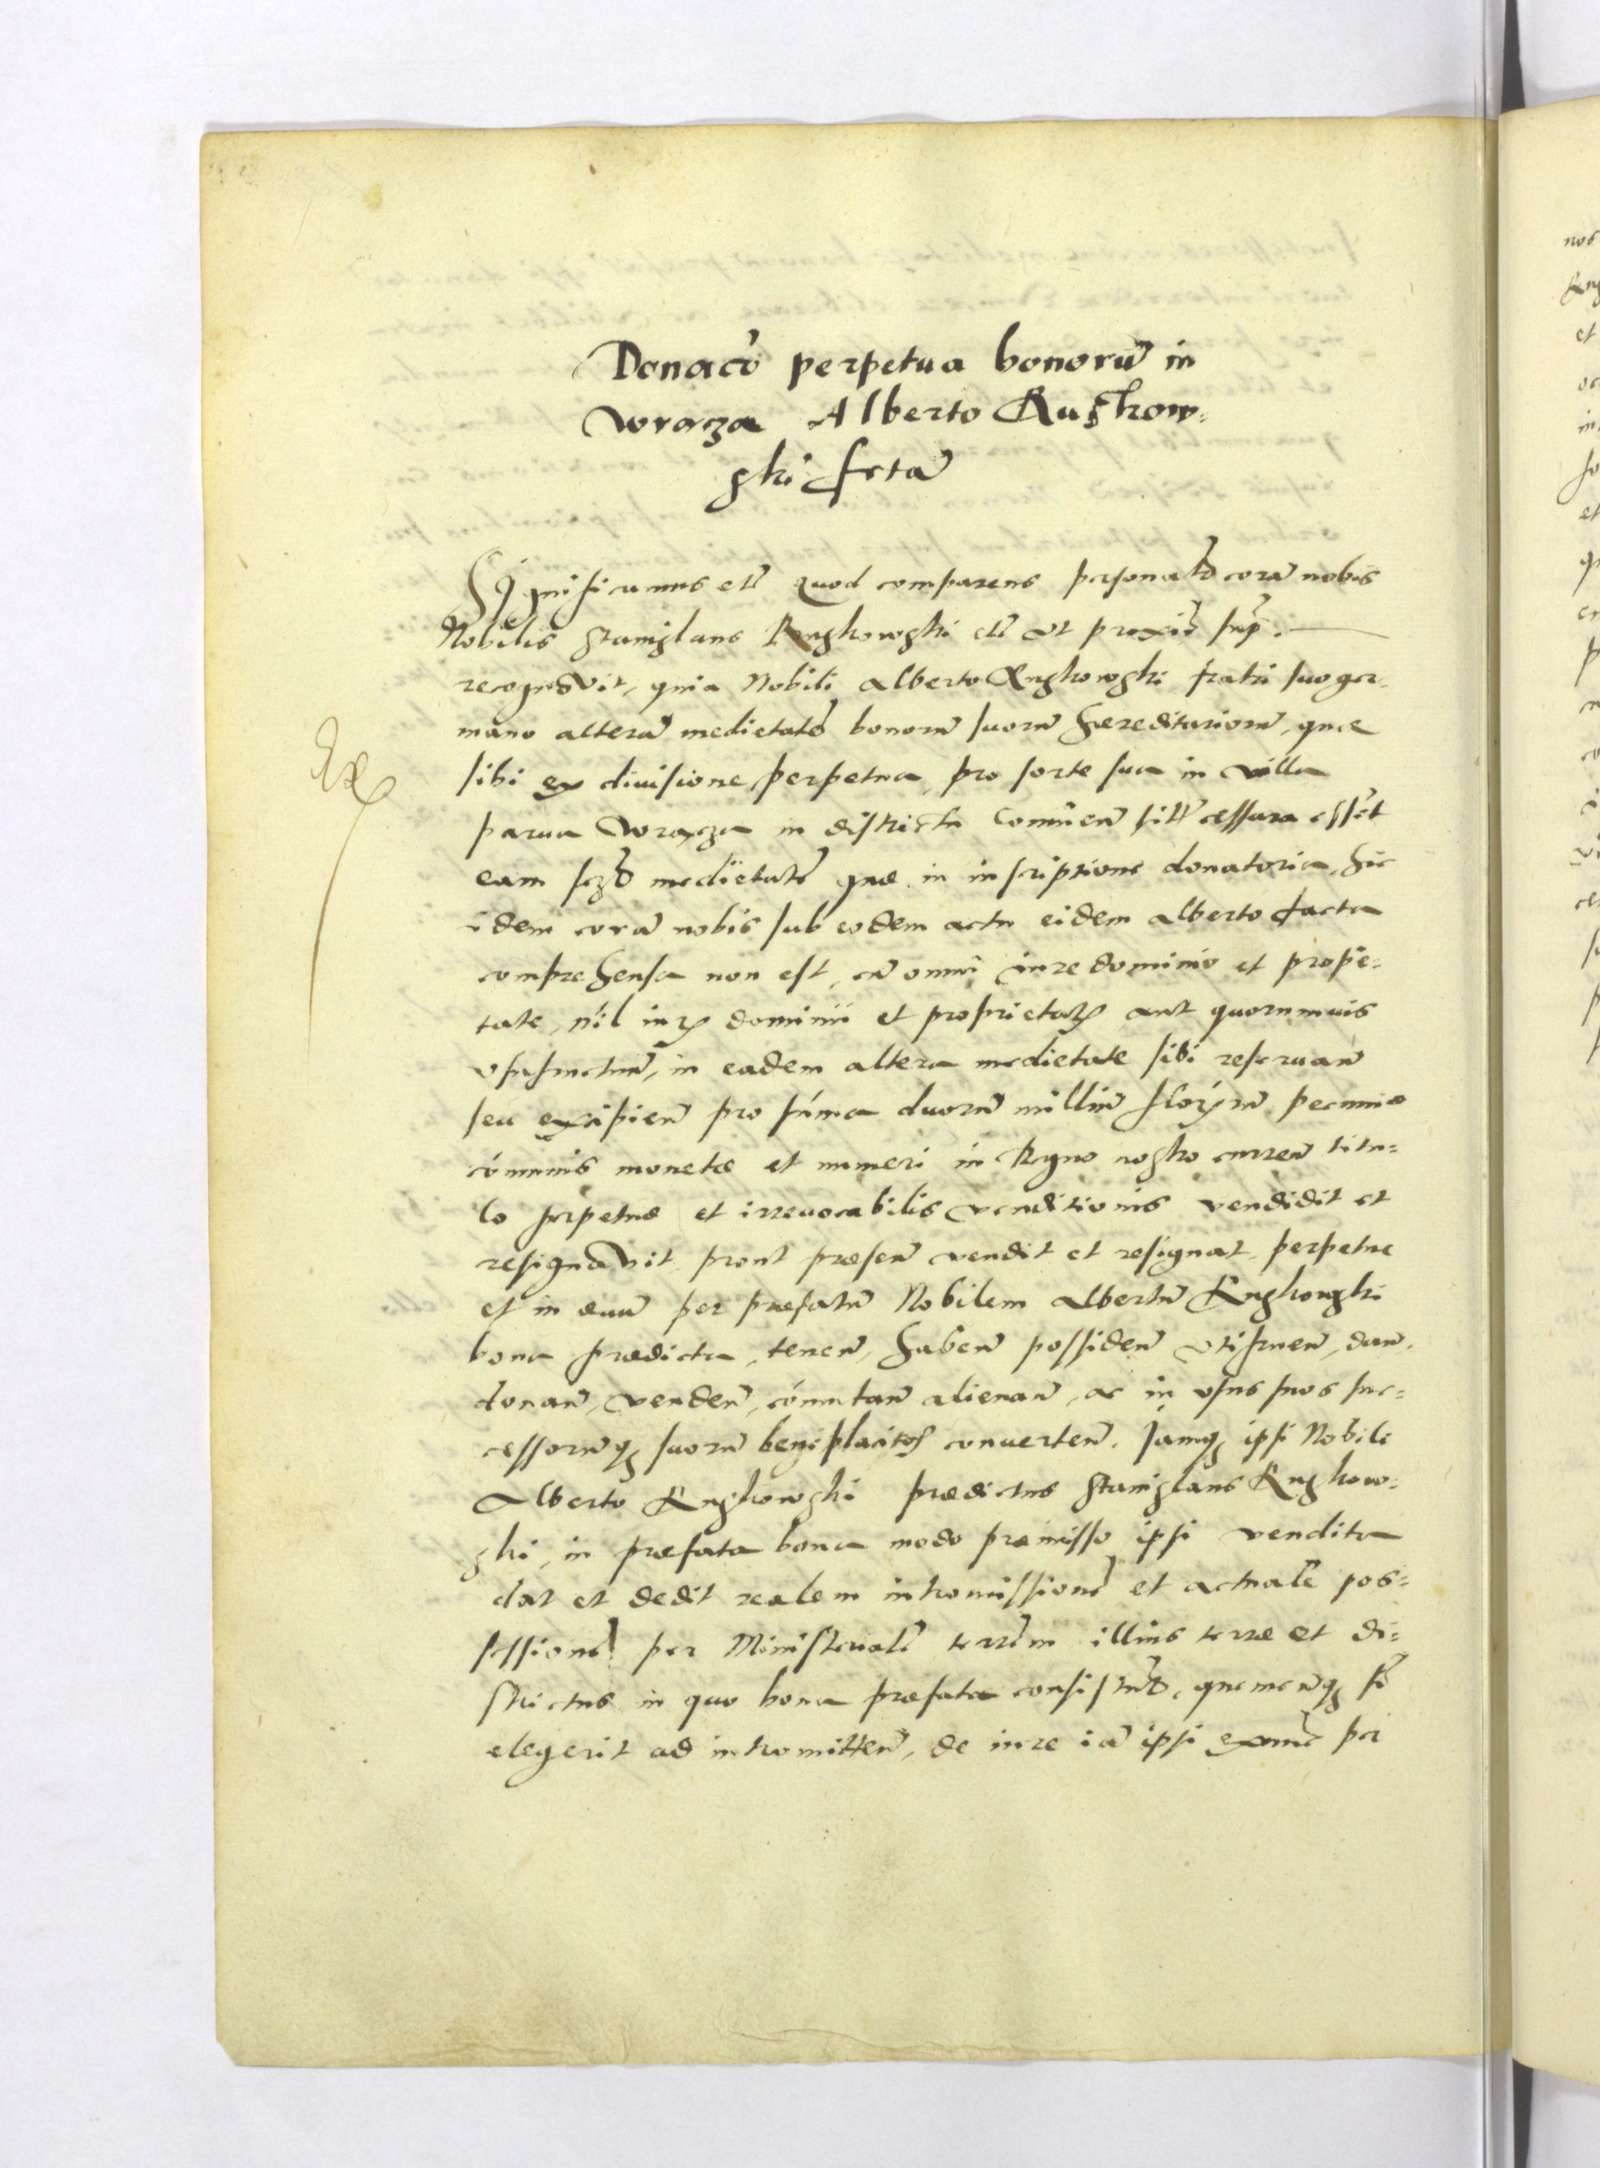 Donacõ perpetua bonorũ in
Wracza Alberto Ruskow-
ski fcta
Significamus etc̃ Quod comparens personal̃r corã nobis
Nobilis Stanislaus Ruskowski etc̃ ut proxiẽ sup̃.
recognovit, quia Nobili Alberto Ruskowski fratri suo ger-
mano alterã medietatẽ bonorũ suorũ hæreditariorũ, quæ
sibi ex divisione perpetua, pro sorte sua in villa
parva Wracza in districtu sitẽ cessura essẽt
eam sczt̃ medietatẽ quæ in inscriptione donatoria, hic
idem corã nobis sub eodem actu eidem Alberto facta
comprehensa non est, cũ omni iure dominio et proprie-
tate, nil iuris dominii et proprietatis aut quorumvis
usufructuũ, in eadem altera medietate sibi reservañ
seu excipieñ pro sum̃a duorũ milliũ florenorũ pecuniæ
com̃unis monetæ et numeri in Regno nostro curreñ titu-
lo perpetuæ et irrevocabilis venditionis vendidit et
resignavit prout præseñ vendit et resignat perpetue
et in ævũ per præfatũ Nobilem Albertũ Ruskowski
bona prædicta, teneñ, habeñ possideñ utifrueñ, dañ,
donañ, vendeñ, com̃utañ alienañ, ac in usus suos suc-
cessorũq; suorũ beneplacitos converteñ. Jamq; ipsi Nobili
Alberto Ruskowski prædictus Stanislaus Ruskow-
ski, in præfata bona modo præmisso ipsi vendita
dat et dedit realem intromissionẽ et actualẽ pos-
sessionẽ per Ministerialẽ terrẽm illius terræ et di-
strictus in quo bona præfata consistũt, quemcũq; s̃
elegerit ad intromitteñ, de iure iã ipsi exnũc per
Ex